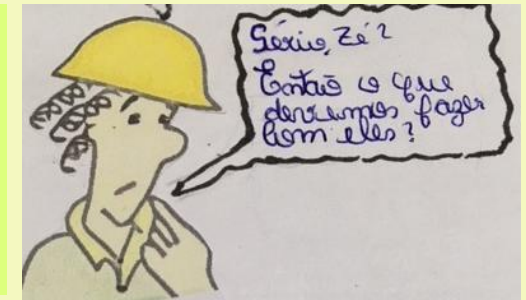 Sério, Zé?
Então o que
devemos fazer
com eles?